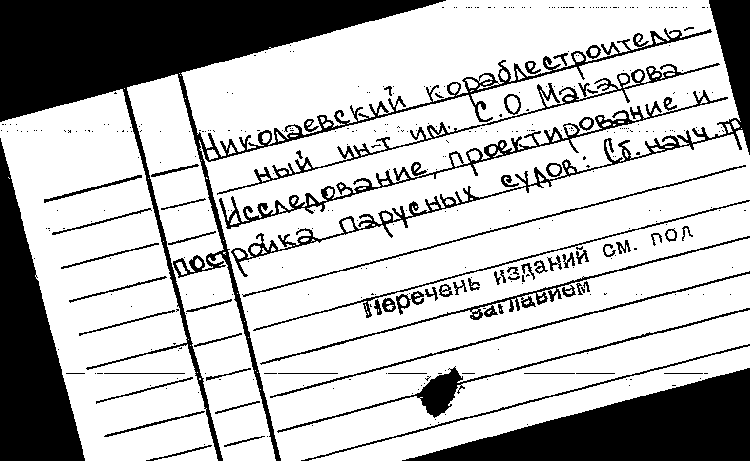 Николаевский кораблестроитель-
ный ин-т им. С.О. Макарова
Исследование, проектирование и
постройка парусных судов: Сб. науч. тр
Перечень изданий см. под
заглавием